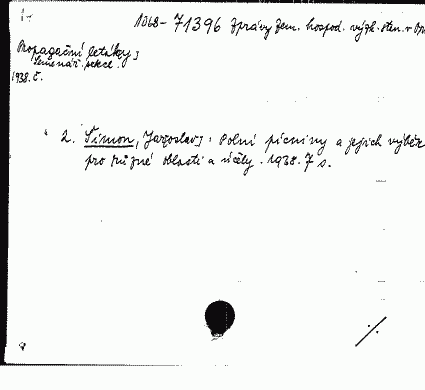 1068-71396 Zprávy zem. hospod. výzk. stan. v
Propagační letáky
Semenář. sekce.
1938. č.
2. Šimon, Jaroslav: Polní pícniny a jejich výběr
pro různé oblasti a účely. 1938. 7 s.